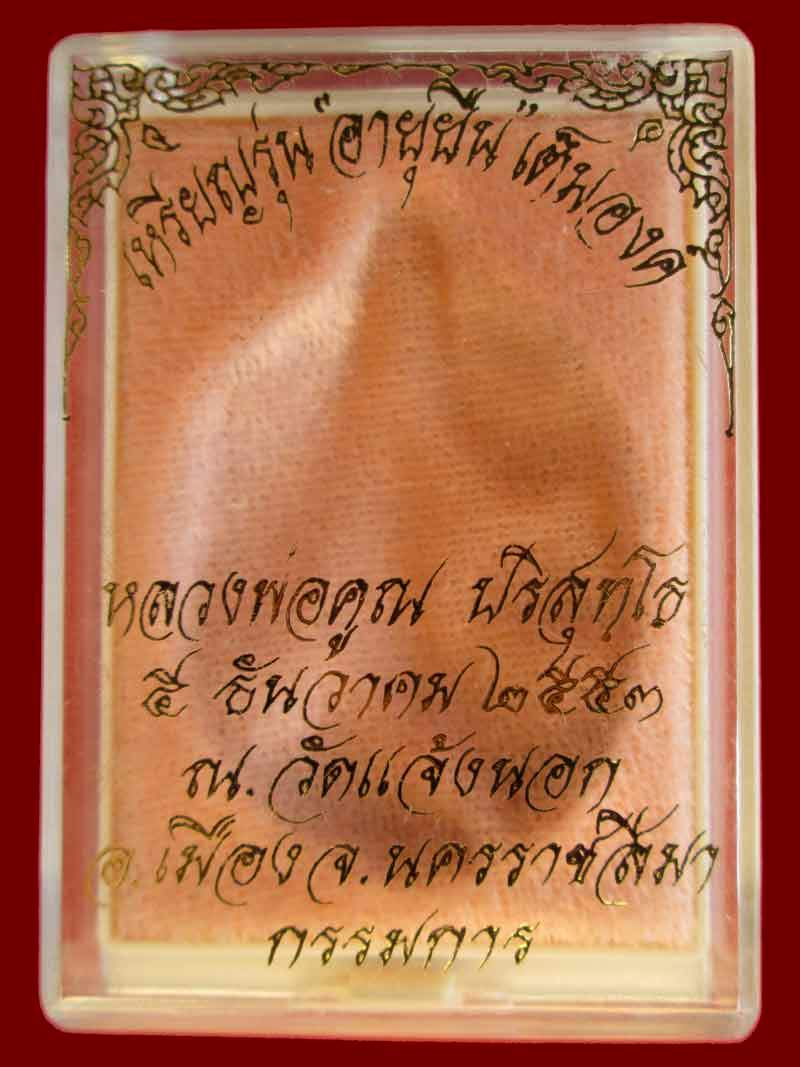 เหรียญรุ่น "อายุยืน" เต็มองค์
หลวงพ่อคูณ ปริสุทฺโธ
๕ ธันวาคม ๒๕๕๓
ณ. วัดแจ้งนอก
อ. เมือง จ. นครราชสีมา
กรรมการ